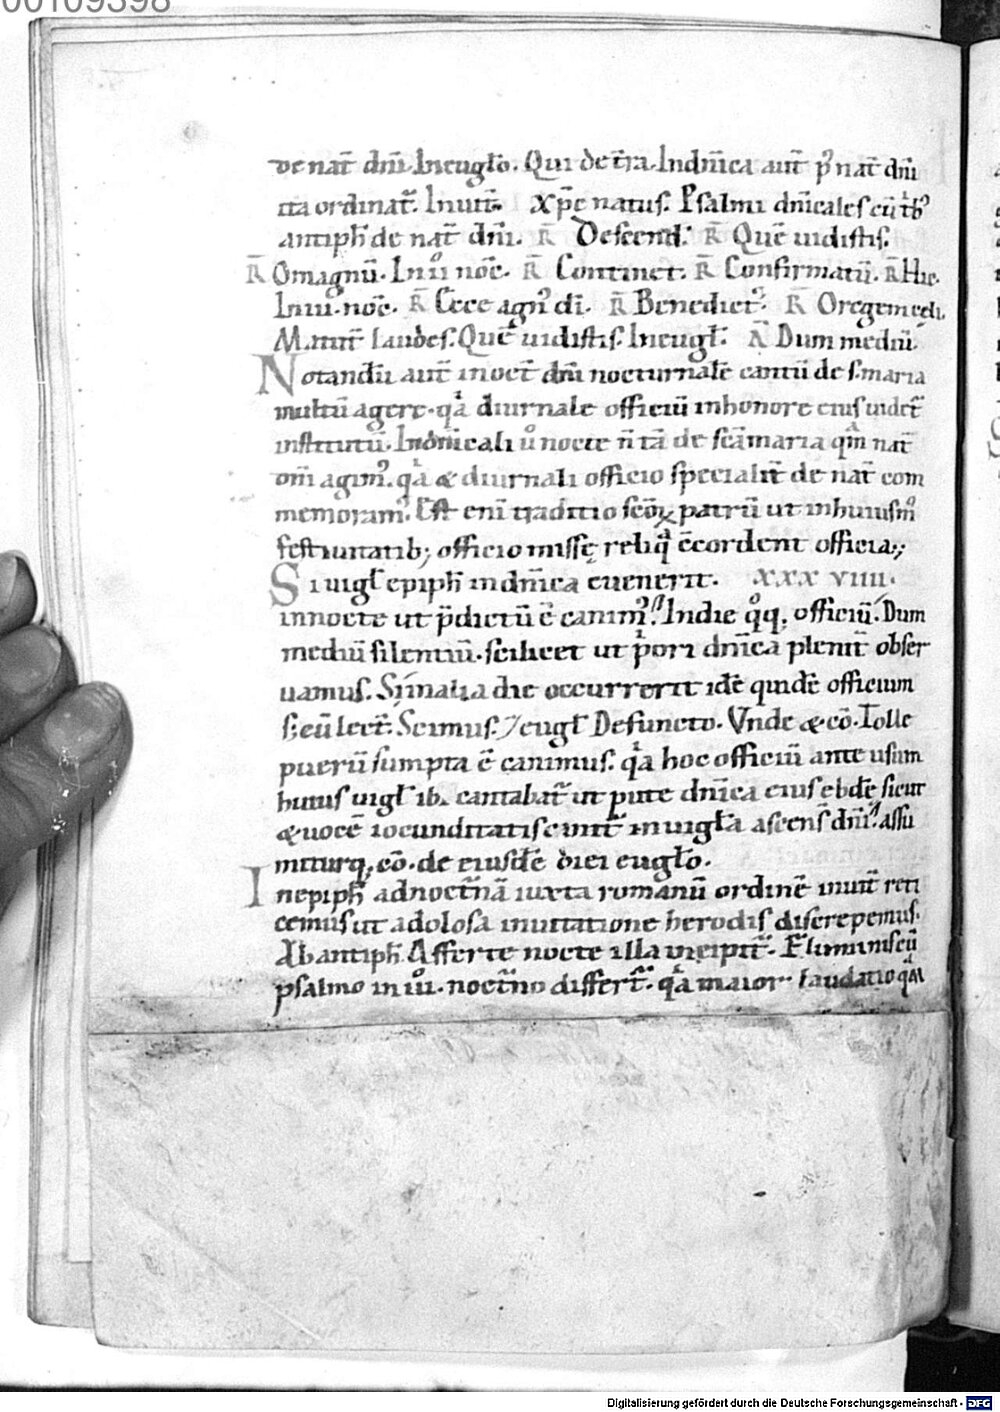 00109398
de nat̄ dn̄i. In eug̅lo. Qui de t̄ra. In dn̄ica aut̄ pꝰ nat̄ dn̄i
ita ordinat̄. Inuit̄. xp̄c natus. Psalmi dn̄icales cū t'bꝰ
antiph̄ de nat̄ dn̄i. R̄ Descend. R̄ Quē uidistis.
R̄ O magnū. In iiᵒ noc̄. R̄ Continet. R̄ Confirmatū. R̄ Hic.
In iii. noc̄. R̄ Ecce agnꝰ di. R̄ Benedictꝰ. R̄ O regem celi.
Matut̄ laudes. Quē uidistis. In eugl̄. R̄ Dum mediū.
Notandū aut̄ in oct̄ dn̄i nocturnalē cantū de s. maria
multū agere. q̇a diurnale officiū in honore eius uidet̄
institutū. In dn̄icali ů nocte n̄ tā de sc̄a maria qm̄ nat̄
dn̄i agimꝰ. q̇a & diurnali officio specialit̄ de nat̄ com
memoramꝰ. Est eni traditio sc̄oꝝ patrū ut in huiusmꝰ
festiuitatib; officio missę reliq̇ ɔ̄cordent officia;
Si uigl̄ epiph̄ in dn̄ica euenerit. XXX VIIII.
in nocte ut p̄dictū ē canimꝰ. In die q̊q; officiū. Dum
mediū silentiū. scilicet ut p̍ori dn̄ica plenit̄ obser
uamus. Si in alia die occurrerit idē quidē officium
s; cū lect̄. Scimus. ⁊ eugl̄ Defuncto. Vnde & cō. Tolle
puerū sumpta ē canimus. q̇a hoc officiū ante usum
huius uigl̄ ib. cantabat̄ ut pute dn̄ica eius ebdē sicut
& uocē iocunditatis cunt̄ in uigl̄a ascens̄ dn̄i. assu
mitur q; cō. de eiusdē diei eugl̄o.
In epiph̄ ad noct̄nā iuxta romanū ordinē inuit̄ reti
cemus ut a dolosa inuitatione herodis discrepemus.
Ab antiph̄. Afferte nocte illa incipit̄. Fluminis cū
psalmo in iii. noct̄no differt̄. q̇a maior laudatio qm̄
Digitalisierung gefördert durch die Deutsche Forschungsgemeinschaft - DFG